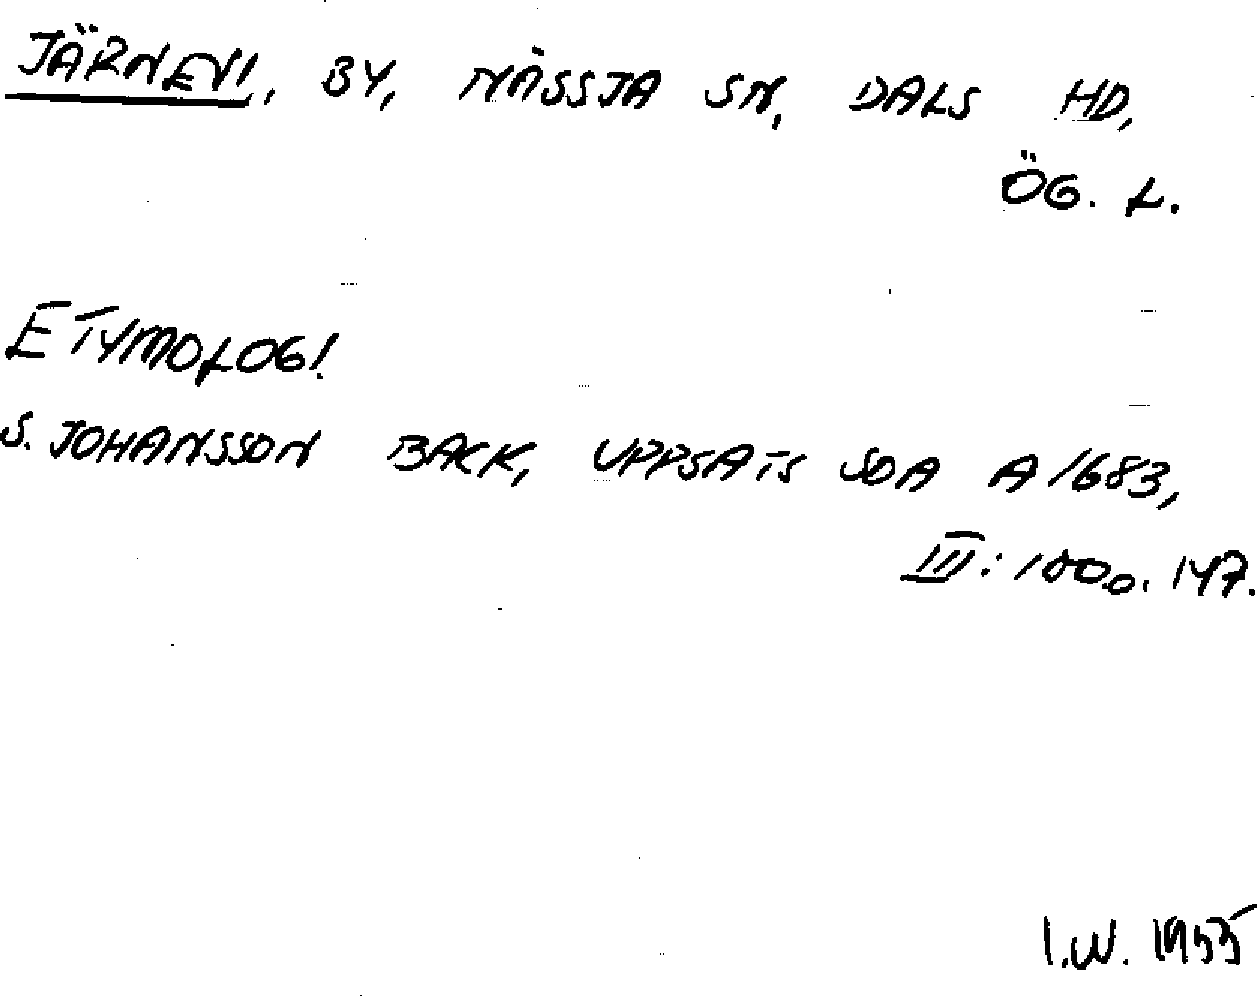 JÄRNEVI, BY, NÄSSJA SN, DALS HD,
ÖG. L.
ETYMOLOGI.
S. JOHANSSON BACK, UPPSATS SOA A 1683,
III: 100 o. 147.
I.W. 1955